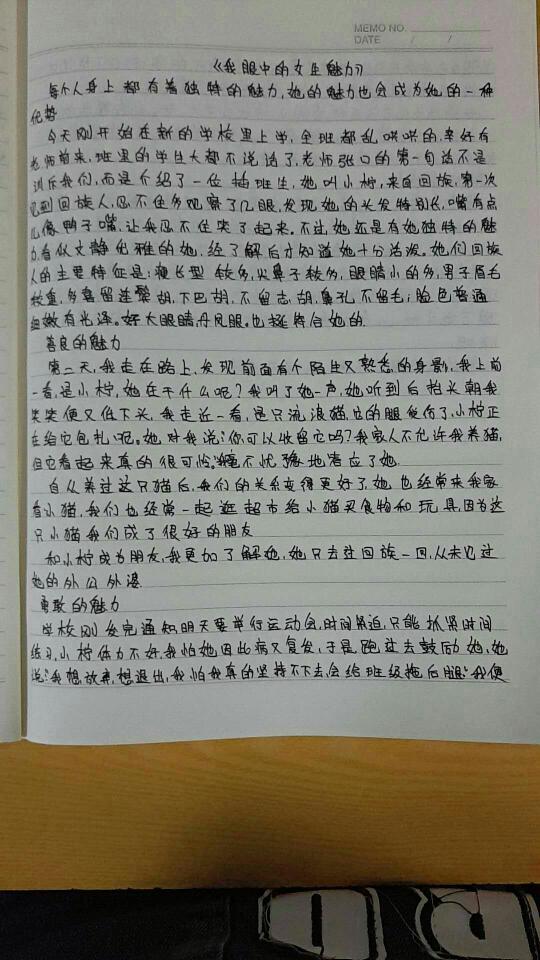 MEMO NO.
DATE / /
《我眼中的女生魅力》
每个人身上都有着独特的魅力,她的魅力也会成为她的一种
优势
今天刚开始在新的学校里上学,全班都乱哄哄的,幸好有
老师前来,班里的学生大都不说话了,老师张口的第一句话不是
训斥我们,而是介绍了一位插班生,她叫小柠,来自回族,第一次
见到回族人,忍不住多观察了几眼,发现她的头发特别长,嘴有点
儿像鸭子嘴,让我忍不住笑了起来。不过,她还是有她独特的魅
力,看似文静优雅的她,经了解后才知道她十分活泼。她们回族
人的主要特征是:瘦长型较多,尖鼻子较多,眼睛小的多,男子眉毛
较重,多喜留连鬓胡,下巴胡,不留志胡,鼻孔不留毛;脸色普通
细嫩有光泽。好大眼睛丹凤眼。也挺符合她的.
善良的魅力
第二天,我走在路上,发现前面有个陌生又熟悉的身影,我上前
一看,是小柠,她在干什么呢?我叫了她一声,她听到后抬头朝我
笑笑便又低下头,我走近一看,是只流浪猫,它的腿受伤了,小柠正
在给它包扎呢。她对我说:“你可以收留它吗?我家人不允许我养猫,
但它看起来真的很可怜。”我毫不忧豫地答应了她.
自从养过这只猫后,我们的关系变得更好了,她也经常来我家
看小猫,我们也经常一起逛超市给小猫买食物和玩具,因为这
只小猫我们成了很好的朋友
和小柠成为朋友,我更加了解她,她只去过回族一回,从未见过
她的外公外婆.
勇敢的魅力
学校刚发完通知明天要举行运动会,时间紧迫,只能抓紧时间
练习,小柠体力不好,我怕她因此病又复发,于是跑过去鼓励她,她
说:“我想放弃,想退出,我怕我真的坚持不下去,会给班级拖后腿.”我便